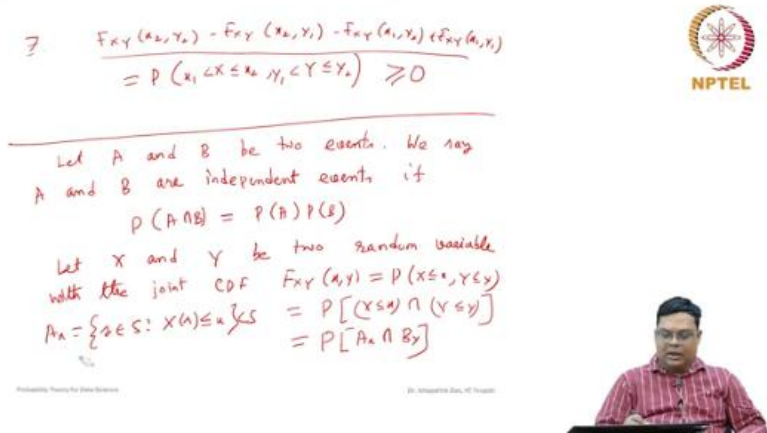 7 F_{XY}(x_2,y_2) - F_{XY}(x_2,y_1) - F_{XY}(x_1,y_2) + F_{XY}(x_1,y_1)
= P(x_1 < X ≤ x_2, y_1 < Y ≤ y_2) ≥ 0
NPTEL
Let A and B be two events. We say
A and B are independent events if
P(A∩B) = P(A)P(B)
Let X and Y be two random variable
with the joint CDF F_{XY}(x,y) = P(X≤x, Y≤y)
= P[(X≤x) ∩ (Y≤y)]
A_x = {s∈S: X(s)≤x}⊂S
= P[A_x ∩ B_y]
Probability Theory for Data Science